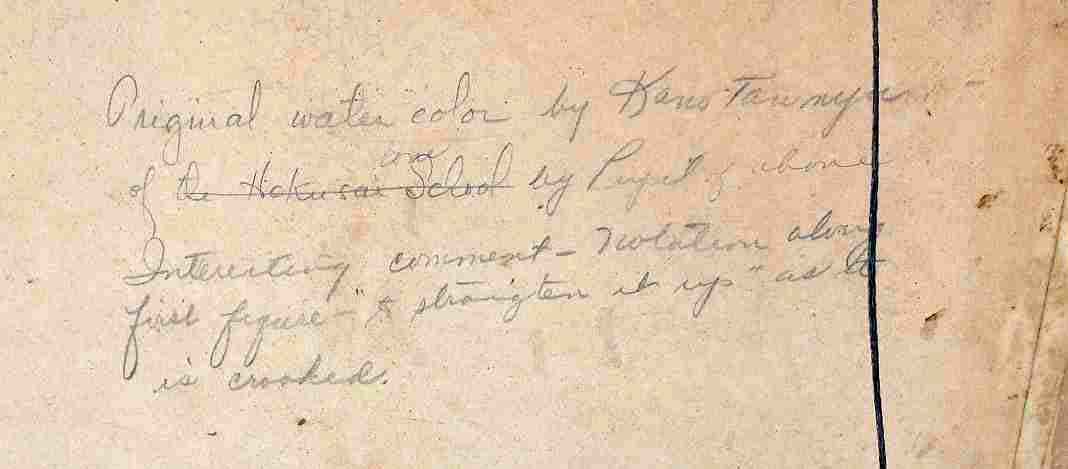 Original water color by Kano Tannyu -
or
of the Hokusai School by Pupil of above
Interesting comment - Notation along
first figure "to straigten it up" as it
is crooked.